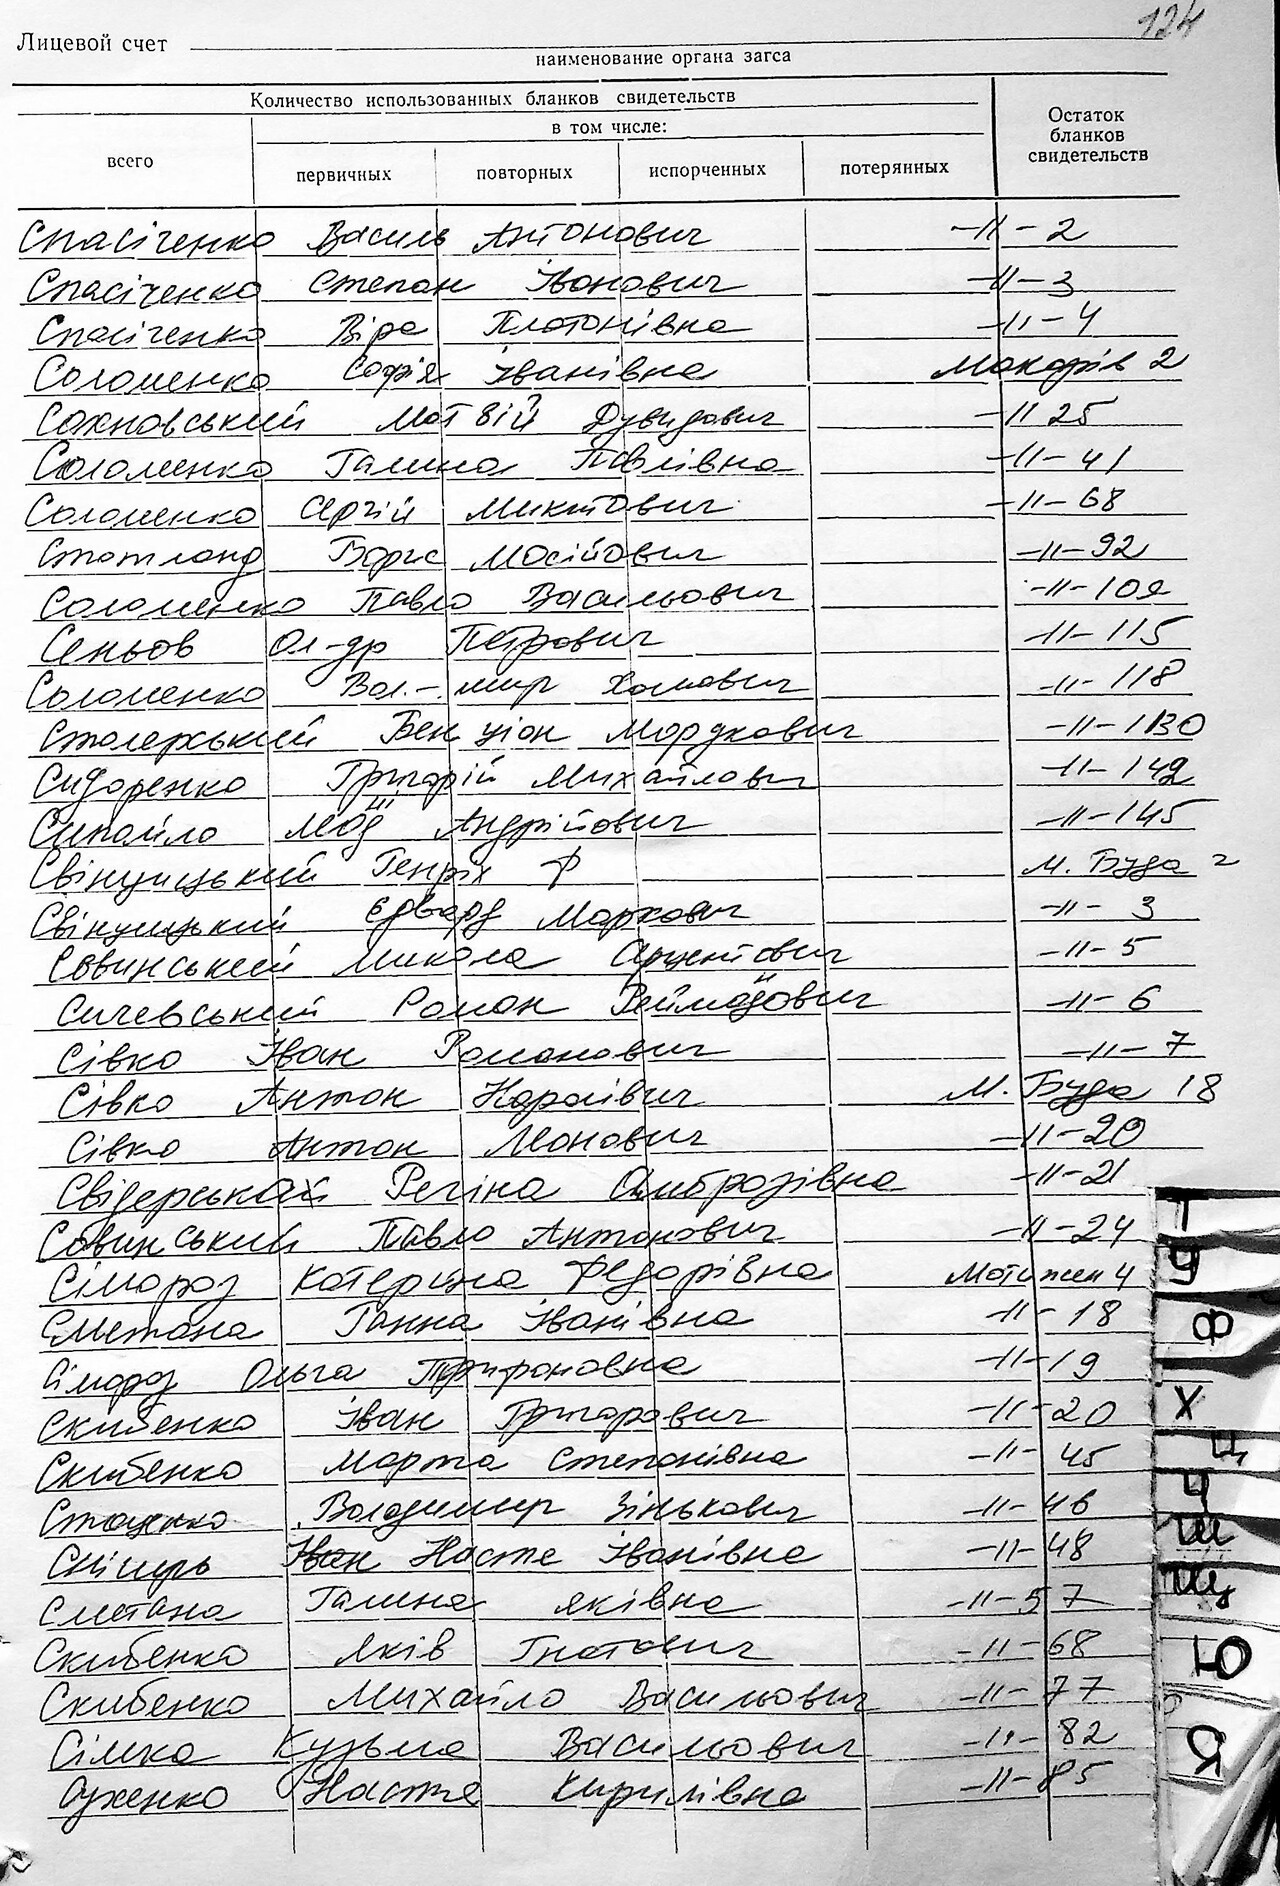 124
Лицевой счет
наименование органа загса
Количество использованных бланков свидетельств
Остаток бланков свидетельств
в том числе:
всего
первичных повторных испорченных потерянных
Спасіченко Василь Антонович -11-2
Спасіченко Степан Іванович -11-3
Спасіченко Віра Платонівна -11-4
Соломенко Софія Іванівна Макарів 2
Сохновський Матвій Дувидович -11 25
Соломенко Галина Павлівна -11-41
Соломенко Сергій Микитович -11-68
Стотланд Борис Мосійович -11-92
Соломенко Павло Васильович -11-102
Сеньов Ол-др Петрович -11-115
Соломенко Вол.-мир Хомович -11-118
Столерський Бенціон Мордкович -11-130
Сидоренко Григорій Михайлович -11-142
Андрійович -11-145
Свінцицький Генріх Ф М. Буда 2
Свінцицький Едвард Маркович -11- 3
Совинський Микола -11-5
Сичевський Роман -11- 6
Сівко Іван Романович -11-7
Сівко Антон Каролівич М. Буда 18
Сівко Антон Леонович -11-20
Свідерський Регіна Амброзівна -11-21
Совинський Павло Антонович -11-24
Сімороз Катерина Федорівна Мотижин 4
Сметана Ганна Іванівна -11-18
Сімороз Ольга Трифоновна -11-19
Скибенко Іван Григорович -11-20
Скибенко Марта Степанівна -11- 45
Стаценко Володимир Зінькович -11-46
Снігирь Іван Настя Іванівна -11-48
Сметана Галина Яківна -11-57
Скибенко Яків Гнатович -11-68
Скибенко Михайло Васильович -11-77
Сімка Кузьма Васильович -11-82
Суженко Настя Кирилівна -11-85
Т
У
Ф
Х
Ц
Ч
Ш
Щ
Ю
Я